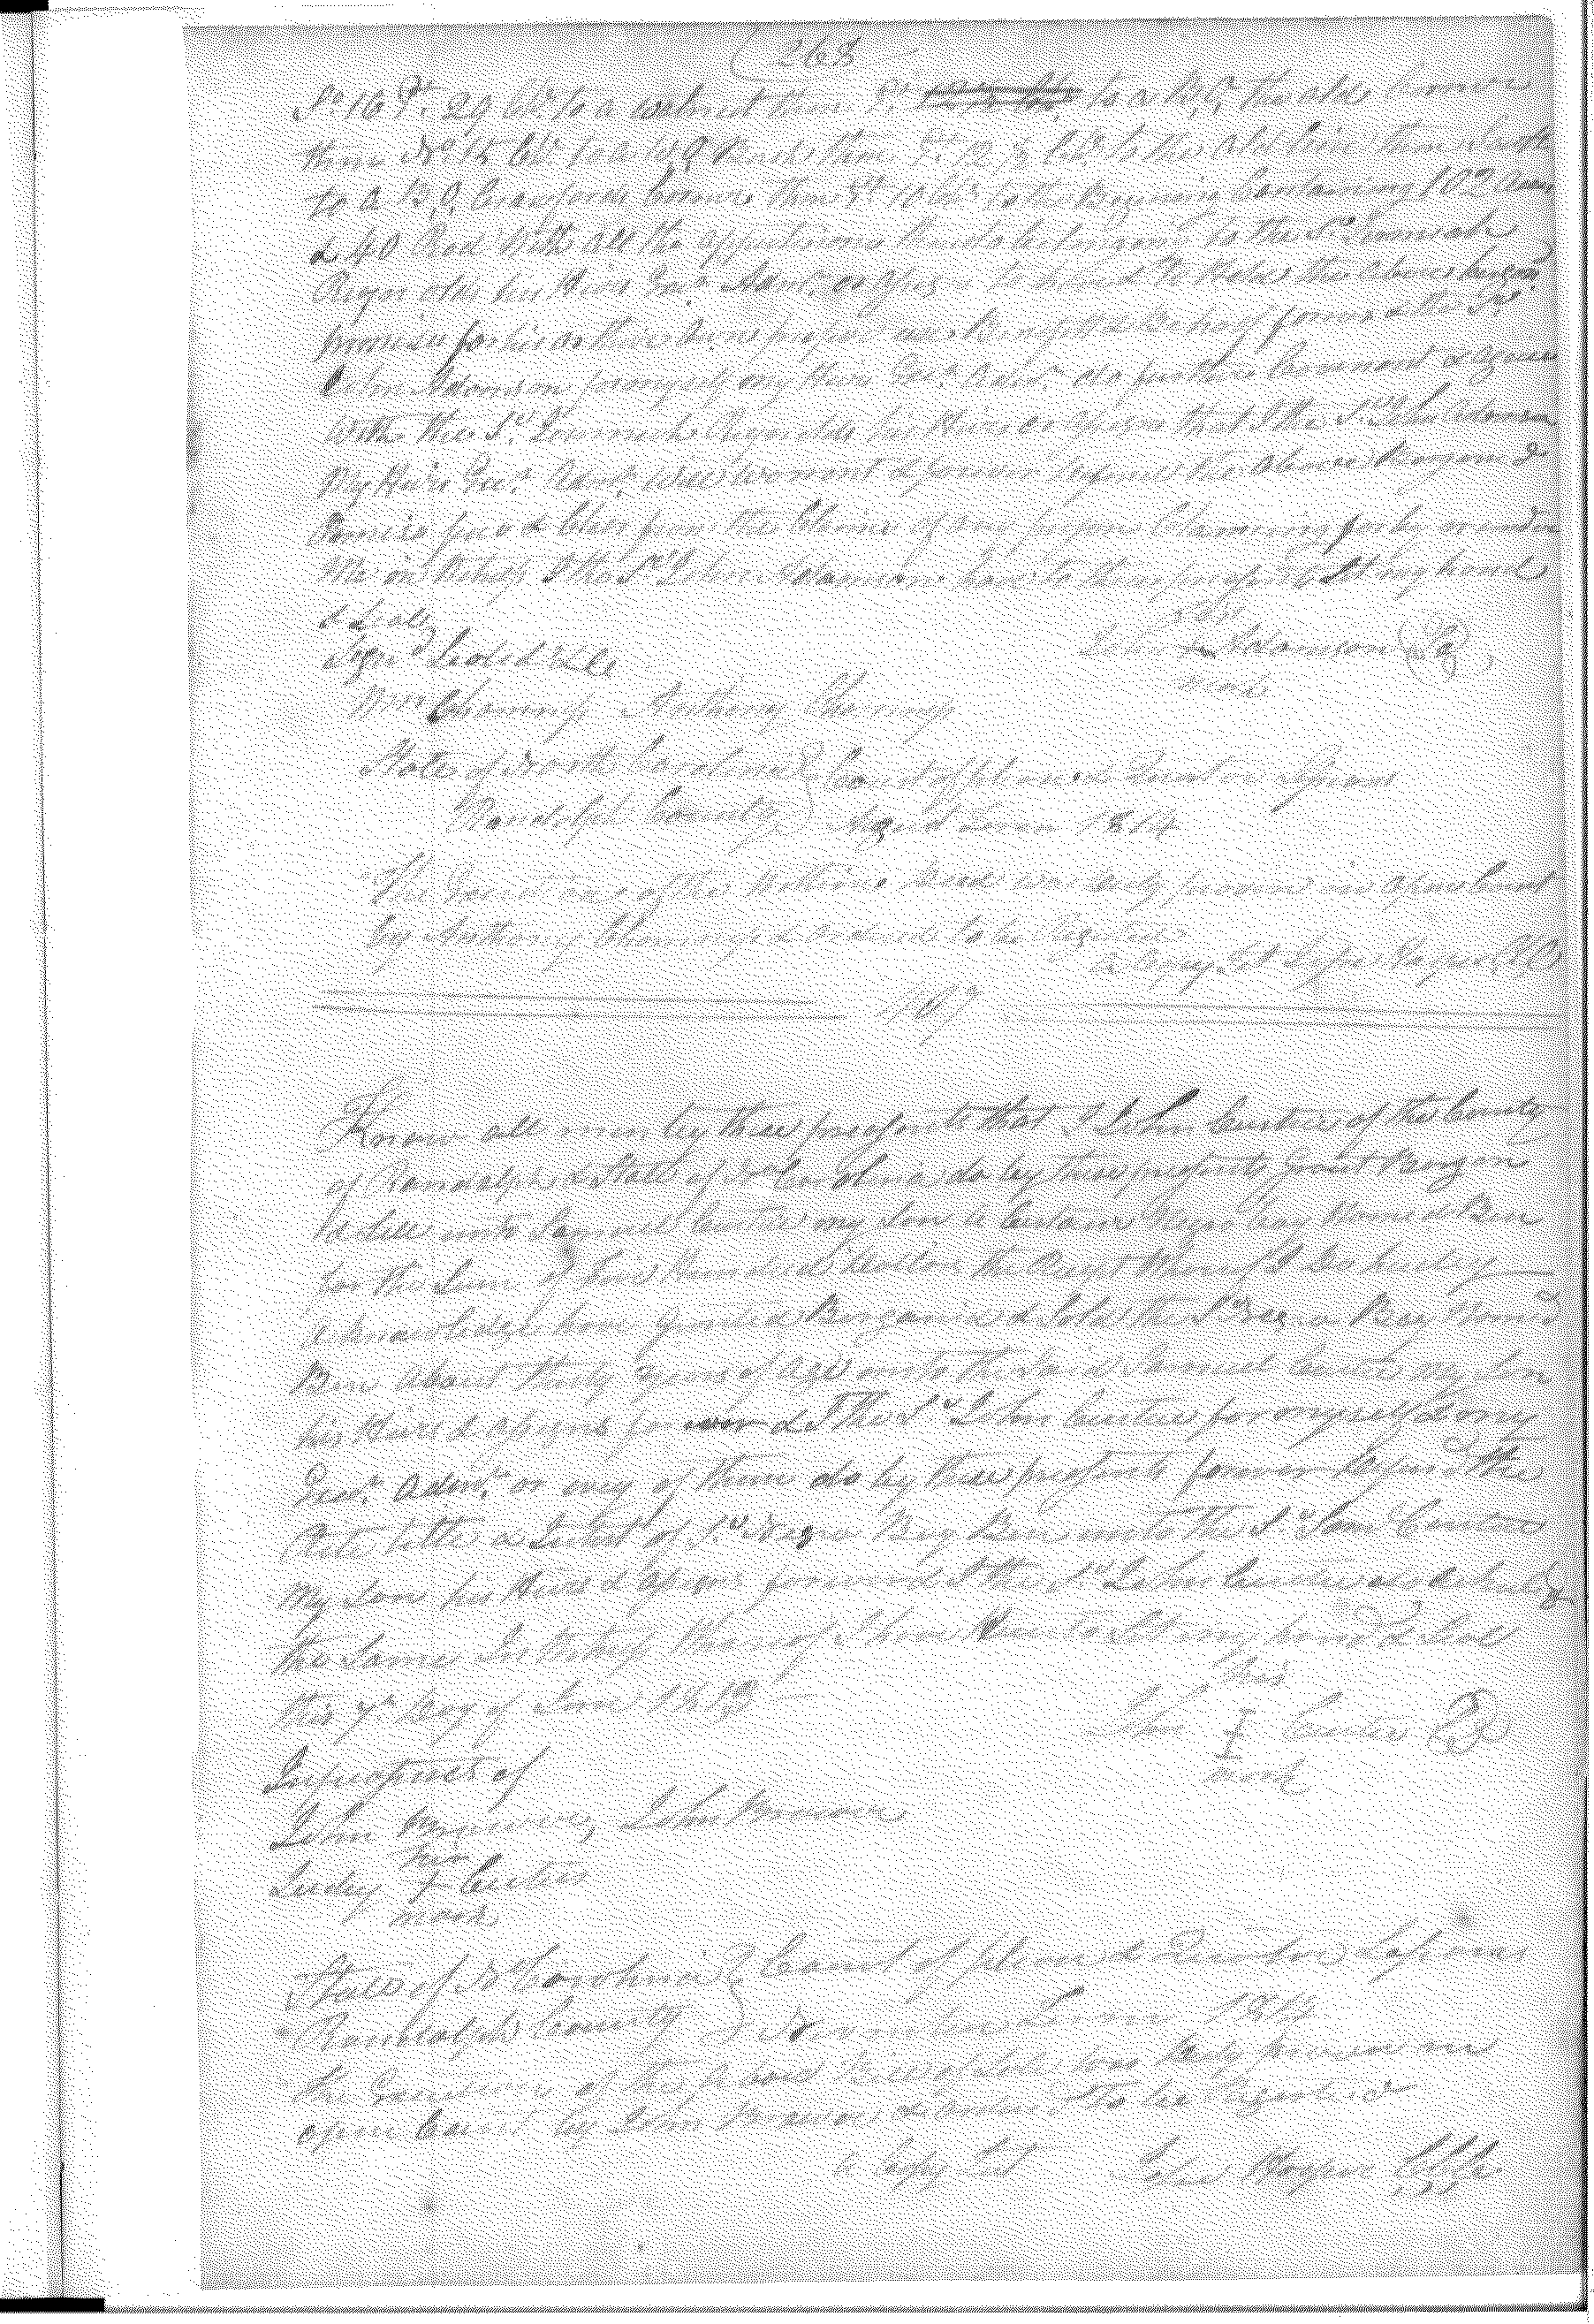 268
So 16 Pr. 29 Chs. to a walnut then to a B.O. the old corner
then No 15 Chs. to a W.O. Bush then Et. 12 & Chs. to the old line then South
to a B.O. Crawfords corner then Et 10 Chs to the Beginning Containing 102 Acres
& 40 Rod With all the appurtenances thereto belonging to the Sd
Reynolds his Heirs Exrs. Adms. or Assigns to have & to Hold the above bargand
premises for his or their own proper use Benefit & Behoof forever & the Sd.
John Adamson for myself my Heirs Exrs. Admr. do further Covenant & agree
with the Sd. Reynolds his Heirs or Assigns that I the Sd John Adamson
My Heirs Exe.s Admrs. will warrant & forever defend the above Bargand
Premises free & Clear from the Claims of any person Claiming for by or under
Me on Behalf I the Sd John Adamson have to these presents Set my hand
& Seal
Signd Sealed & Del his
John + Adamson
mark
Wm Chamny Anthony Chamny
State of North Carolina Court of pleas & Quarter Sessions
Randolph County August term 1814
The Execution of the within deed was duly proven in open Court
by Anthony Chamny & ordered to be Registered
a Copy Test Jesse Harper CC
Know all men by these presents that I John Curtis of the County
of Randolph & State of No Carolina do by these presents Grant Bargon
& Sell unto Samuel Curtis my Son a Certain Negro boy Named Ben
for the Sum of five Hundred Dollars the Receipt thereof I do hereby
acknowledge have granted Bargained & Sold the Sd Negro Boy Namd
Ben about thirty years of Age unto the said Samuel Curtis my Son
his Heirs & assigns forever & I the Sd John Curtis for myself & my
Exers. Admrs. or any of them do by these presents forever defend the
Rite title & Intrest of Sd Negro Boy Ben unto the Sd Saml Curtis
My Son his Heirs & Assigns forever & I the Sd John Curtis do deliver
the Same In Behalf thereof I have Hereunto Set my hand & Seal
this 7th Day of June 1813
his
John I Curtis
mark
In presents of
John Brewer, John Brewer
her
Judey + Curtis
mark
State of N Carolina Court of pleas & Quarter Sessions
Randolph County November Term 1814
the Execution of the above Bill of Sale was duly proven in
open Court by John Brewer & Ordered to be Registered
a Copy Test Jesse Harper CCk